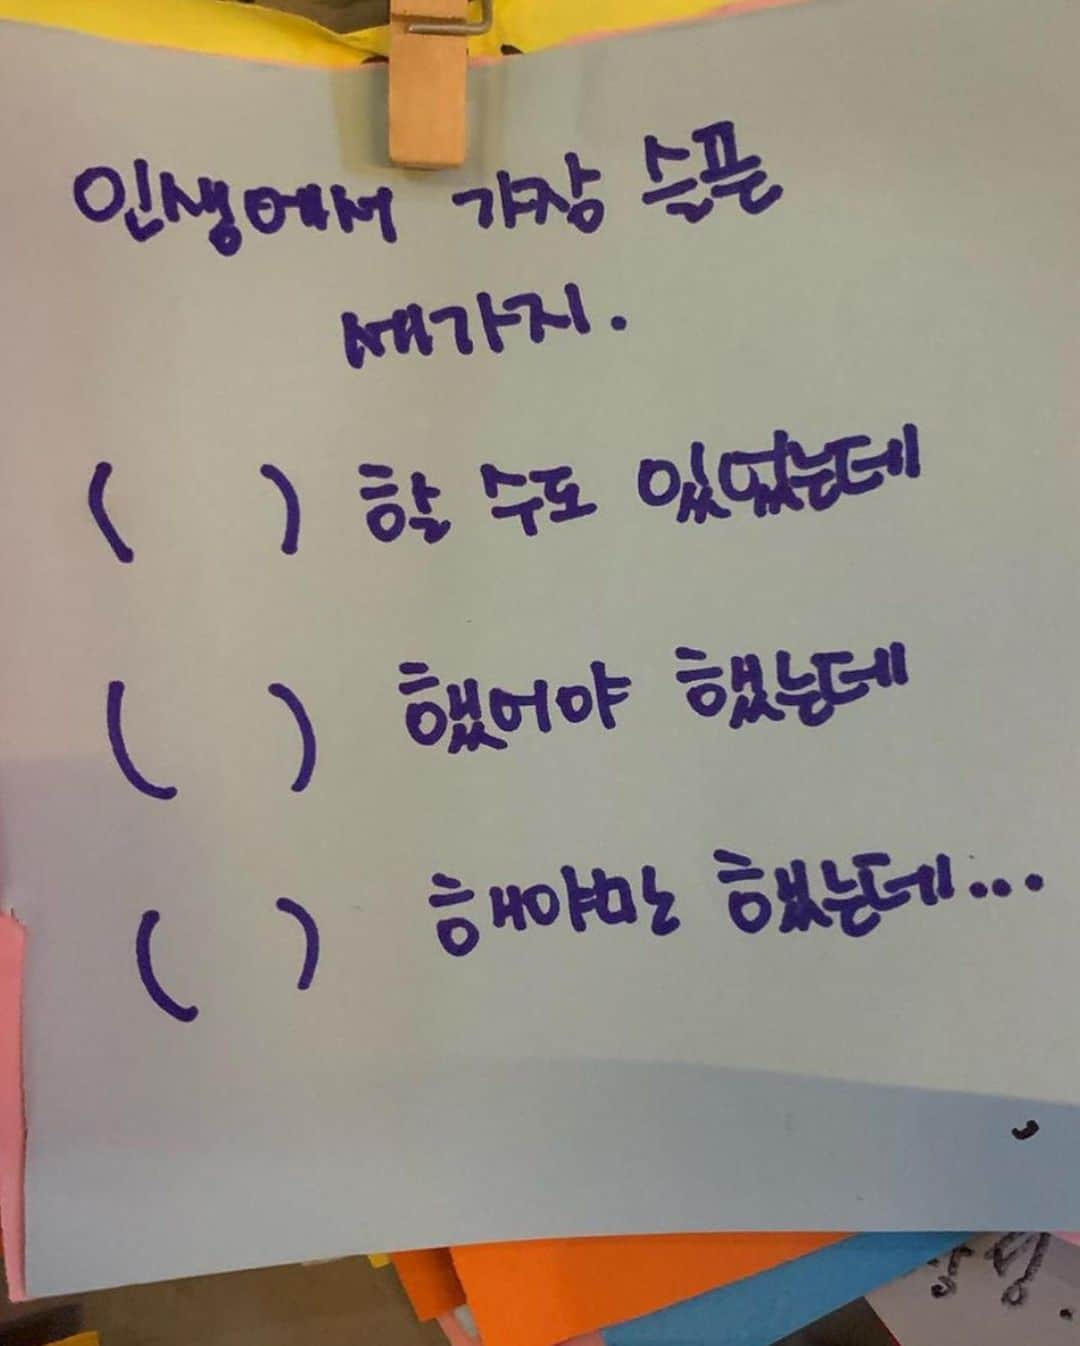 인생에서 가장 슬픈
세가지.
( ) 할 수도 있었는데
( ) 했어야 했는데
( ) 해야만 했는데...